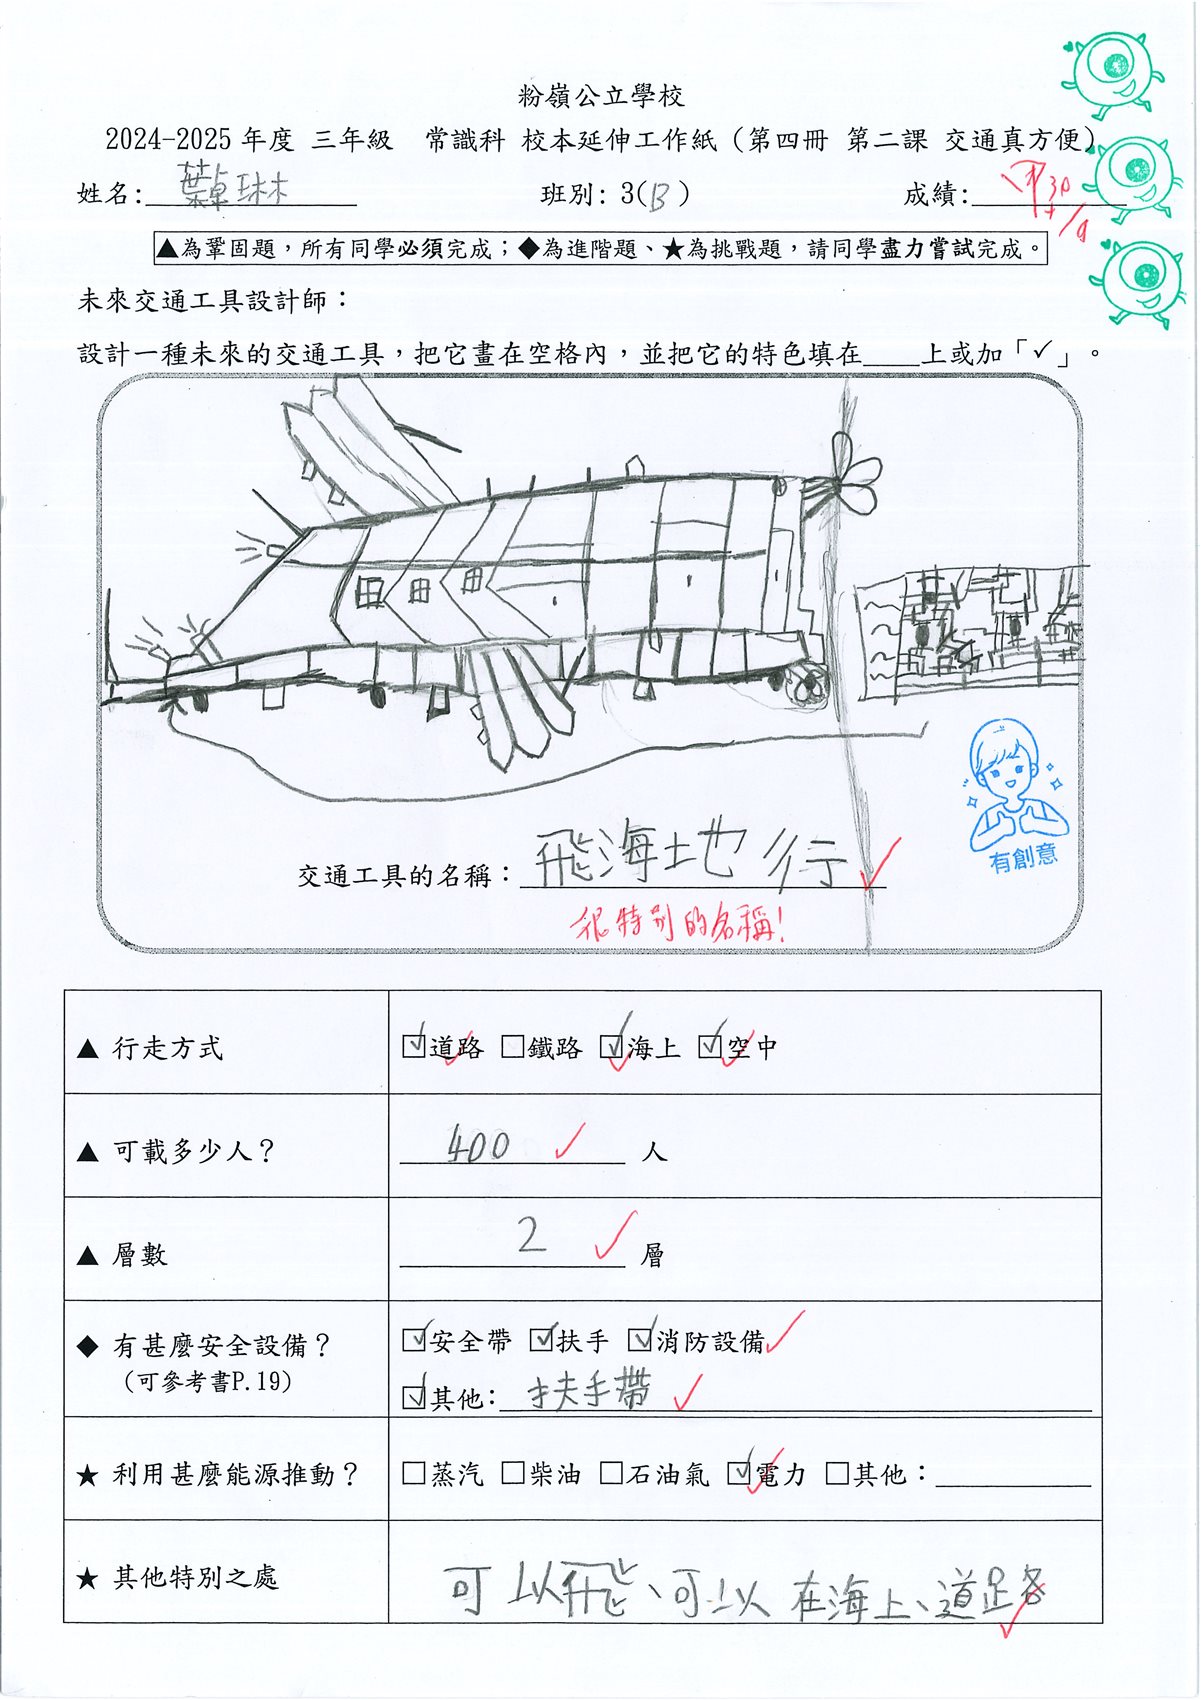 粉嶺公立學校
2024-2025 年度 三年級 常識科 校本延伸工作紙（第四冊 第二課 交通真方便）
姓名：葉卓琳 班別：3(B) 成績：甲+ 30/9
▲為鞏固題，所有同學必須完成；◆為進階題、★為挑戰題，請同學盡力嘗試完成。
未來交通工具設計師：
設計一種未來的交通工具，把它畫在空格內，並把它的特色填在____上或加「✓」。
有創意
交通工具的名稱：飛海地行
很特別的名稱！
▲ 行走方式 ☑道路 □鐵路 ☑海上 ☑空中
▲ 可載多少人？ 400 人
▲ 層數 2 層
◆ 有甚麼安全設備？ ☑安全帶 ☑扶手 ☑消防設備
（可參考書P.19） ☑其他：扶手帶
★ 利用甚麼能源推動？ □蒸汽 □柴油 □石油氣 ☑電力 □其他：
★ 其他特別之處 可以飛、可以在海上、道路